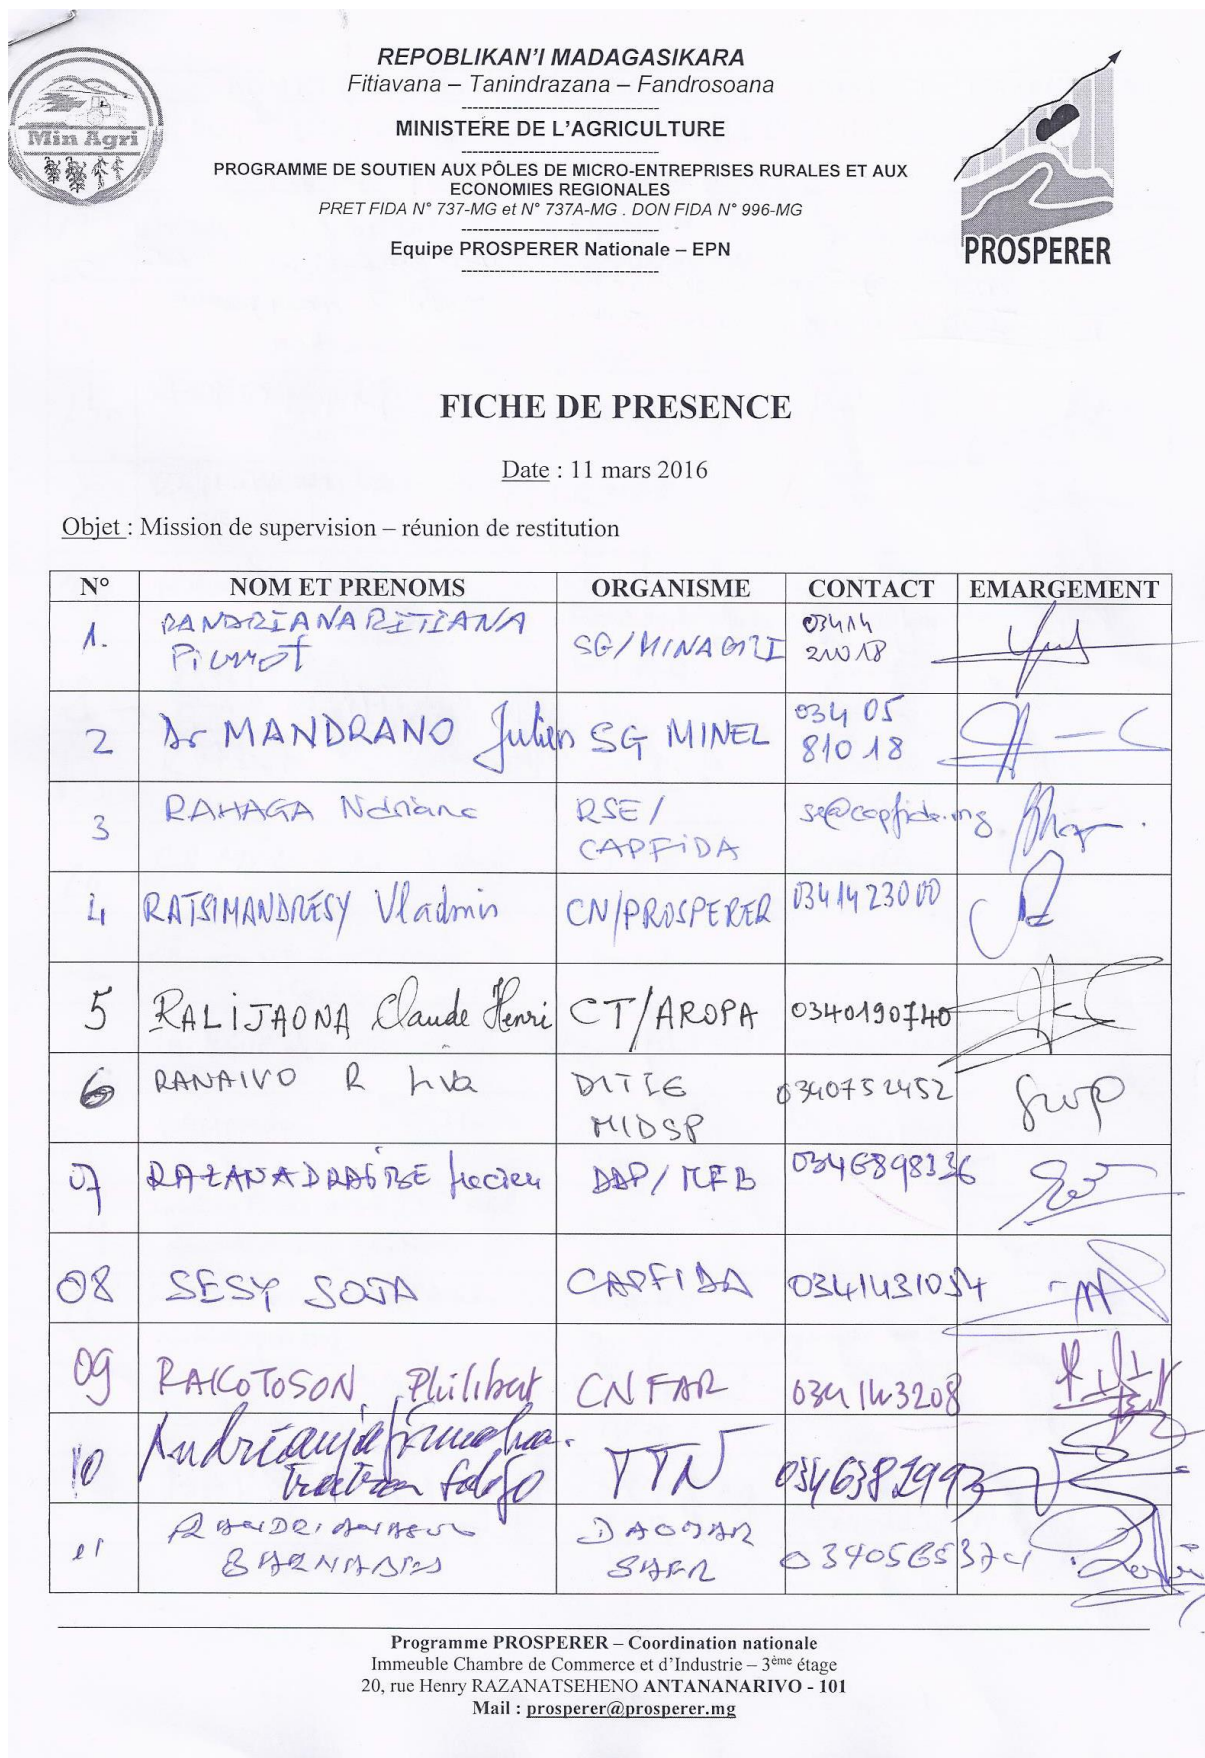 Min Agri
REPOBLIKAN'I MADAGASIKARA
Fitiavana – Tanindrazana – Fandrosoana
MINISTERE DE L'AGRICULTURE
PROGRAMME DE SOUTIEN AUX PÔLES DE MICRO-ENTREPRISES RURALES ET AUX
ECONOMIES REGIONALES
PRET FIDA N° 737-MG et N° 737A-MG . DON FIDA N° 996-MG
Equipe PROSPERER Nationale – EPN
PROSPERER
FICHE DE PRESENCE
Date : 11 mars 2016
Objet : Mission de supervision – réunion de restitution
N° NOM ET PRENOMS ORGANISME CONTACT EMARGEMENT
1. SG/MINAGRI 03414
Pierrot 21018
2 Dr MANDRANO Julien SG MINEL 034 05
81018
3 RAHAGA Ndriana RSE/ se@capfida.mg
CAPFIDA
4 RATSIMANDRESY Vladmin CN/PROSPERER 0341423000
5 RALIJAONA Claude Henri CT/AROPA 0340190740
6 RANAIVO R Liva 0340752452
MIDSP
07 0346898336
08 SESY SOJA CAPFIDA
09 RAKOTOSON Philibert CNFAR 034143208
10 TTN
11
SAER
Programme PROSPERER – Coordination nationale
Immeuble Chambre de Commerce et d'Industrie – 3ème étage
20, rue Henry RAZANATSEHENO ANTANANARIVO - 101
Mail : prosperer@prosperer.mg